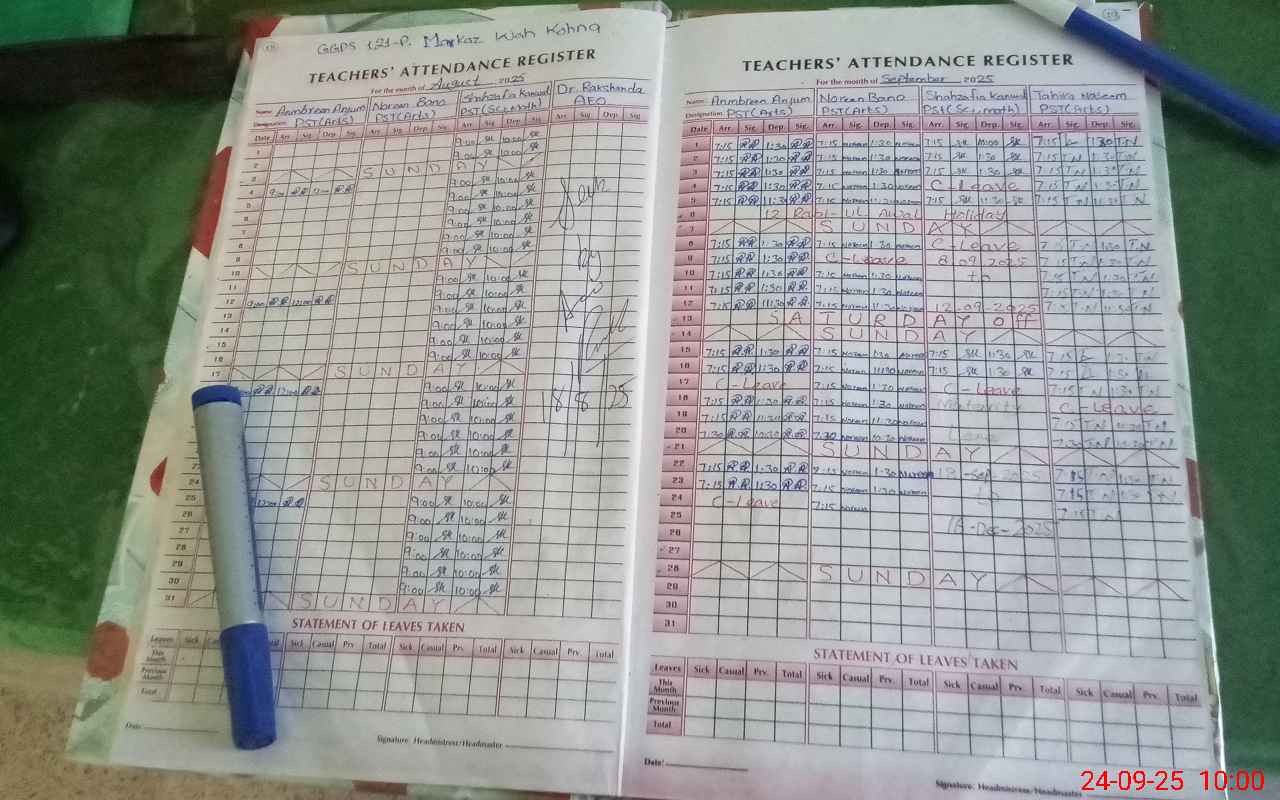 GGPS 121-P. Markaz Wah Kohna
TEACHERS' ATTENDANCE REGISTER
For the month of August 2025
Name Anmbreen Anjum Noreen Bano Shahzafia Kanwal Dr. Rakshanda
Designation PST(Arts) PST(Arts) PST(Sci,math) AEO
Date Arr. Sig. Dep. Sig. Arr. Sig. Dep. Sig. Arr. Sig. Dep. Sig. Arr. Sig. Dep. Sig.
1 9:00 10:00
2 9:00 10:00
3 SUNDAY
4 9:00 9:00 10:00
5 9:00 10:00
6 9:00 10:00
7 9:00 10:00
8 9:00 10:00
9 9:00 10:00
10 SUNDAY
11 9:00 10:00
12 9:00 12:00 9:00 10:00
13 9:00 10:00
14 9:00 10:00
15 9:00 10:00
16 9:00 10:00
17 SUNDAY
9:00 10:00
18 8 25
9:00 10:00
9:00 10:00
9:00 10:00
9:00 10:00
9:00 10:00
24 SUNDAY
25 12:00 9:00 10:00
26 9:00 10:00
27 9:00 10:00
28 9:00 10:00
29 9:00 10:00
30 9:00 10:00
31 SUNDAY
STATEMENT OF LEAVES TAKEN
Leaves Sick Casual Prv. Total Sick Casual Prv. Total Sick Casual Total
This Month
Previous Month
Total
Date:
Signature: Headmistress/Headmaster
TEACHERS' ATTENDANCE REGISTER
For the month of September 2025
Name Anmbreen Anjum Noreen Bano Shahzafia Kanwal Tahira Naseem
Designation PST(Arts) PST(Arts) PST(Sci,math) PST(Arts)
Date Arr. Sig. Dep. Sig. Arr. Sig. Dep. Sig. Arr. Sig. Dep. Sig. Arr. Sig. Dep. Sig.
1 7:15 1:30 7:15 Noreen 1:30 Noreen 7:15 10:00 7:15 1:30 T.N
2 7:15 1:30 7:15 Noreen 1:30 Noreen 7:15 1:30 7:15 T.N 1:30 T.N
3 7:15 1:30 7:15 Noreen 1:30 Noreen 7:15 1:30 7:15 T.N 1:30 T.N
4 7:15 1:30 7:15 Noreen 1:30 Noreen C-Leave 7:15 T.N 1:30 T.N
5 7:15 11:30 7:15 Noreen 11:30 Noreen 7:15 11:30 7:15 T.N 11:30 T.N
6 12 Rabi-UL Awal Holiday
7 SUNDAY
8 7:15 1:30 7:15 Noreen 1:30 Noreen C-Leave 7:15 T.N 1:30 T.N
9 7:15 1:30 C-Leave 8.09.2025 7:15 T.N 1:30 T.N
10 7:15 1:30 7:15 Noreen 1:30 Noreen to 7:15 T.N 1:30 T.N
11 7:15 1:30 7:15 T.N 1:30 T.N
12 7:15 11:30 7:15 Noreen 11:30 Noreen 12-09-2025 7:15 T.N 11:30 T.N
13 SATURDAY Off
14 SUNDAY
15 7:15 1:30 7:15 Noreen 1:30 Noreen 7:15 1:30 7:15 1:30 T.N
16 7:15 1:30 7:15 Noreen 1:30 Noreen 7:15 1:30 7:15 1:30 T.N
17 C-Leave 7:15 Noreen 1:30 Noreen C-Leave 7:15 T.N 1:30 T.N
18 7:15 1:30 7:15 Noreen 1:30 Noreen Maternity C-Leave
19 7:15 11:30 7:15 Noreen 11:30 Noreen 7:15 T.N 11:30 T.N
20 7:30 10:30 7:30 Noreen 10:30 Noreen 7:30 T.N 10:30 T.N
21 SUNDAY
22 7:15 1:30 7:15 Noreen 1:30 Noreen 19-Sep-2025 7:15 T.N 1:30 T.N
23 7:15 1:30 7:15 Noreen 1:30 Noreen to 7:15 T.N 1:30 T.N
24 C-Leave 7:15 Noreen 7:15 T.N
25 16-Dec-2025
26
27
28 SUNDAY
29
30
31
STATEMENT OF LEAVES TAKEN
Leaves Sick Casual Prv. Total Sick Casual Prv. Total Sick Casual Prv. Total Sick Casual Prv. Total
This Month
Previous Month
Total
Date:
Signature: Headmistress/Headmaster
24-09-25 10:00